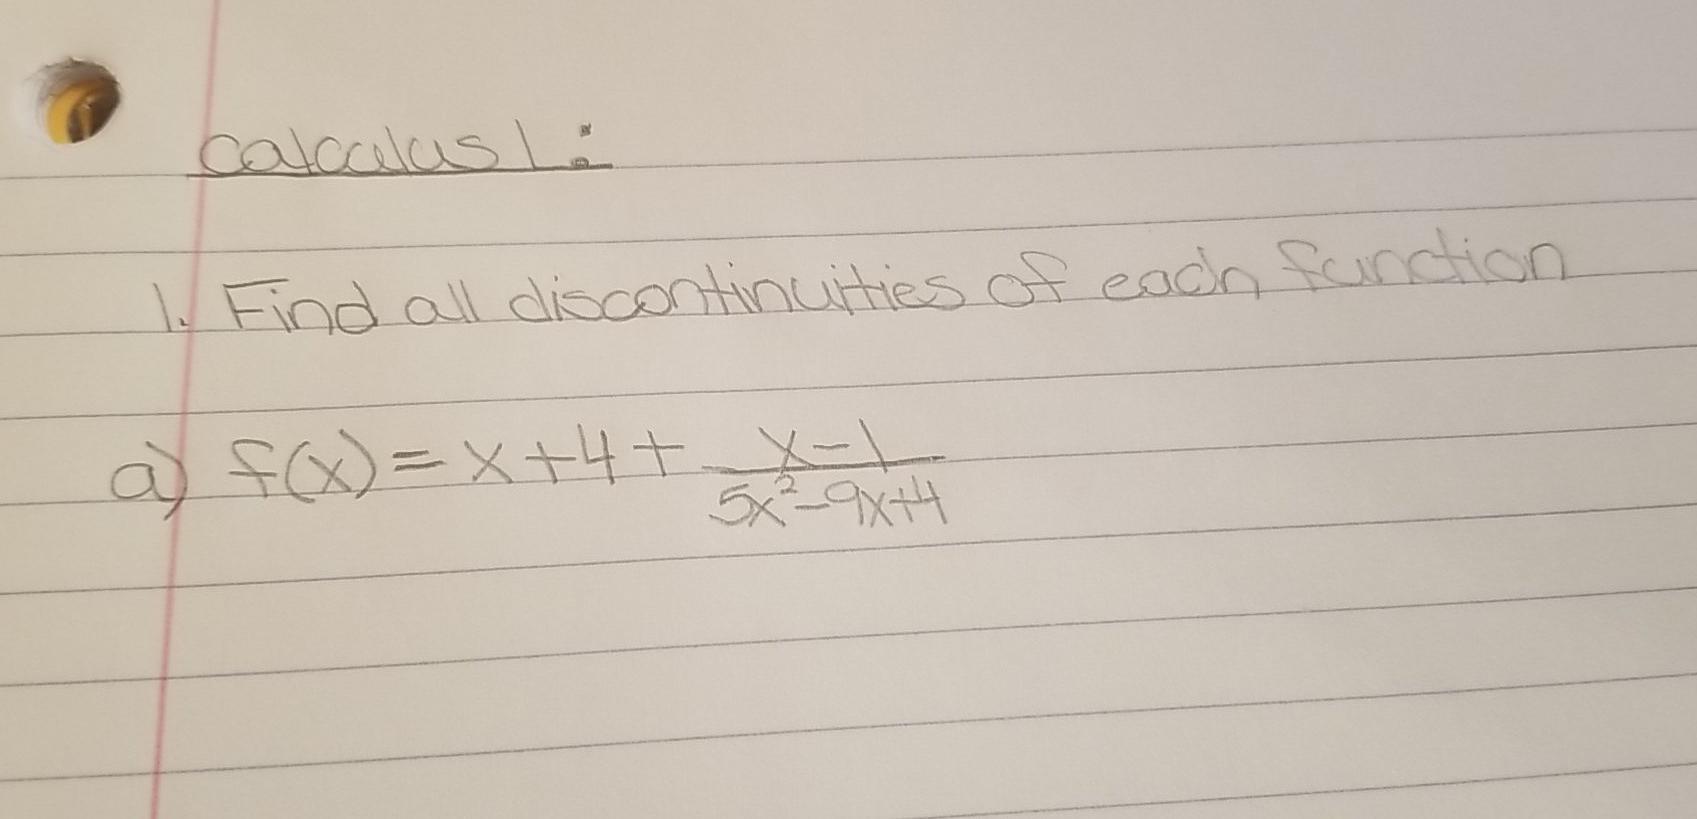 Calculus 1:
1. Find all discontinuities of each function
a) f(x) = x + 4 + \frac{x-1}{5x²-9x+4}